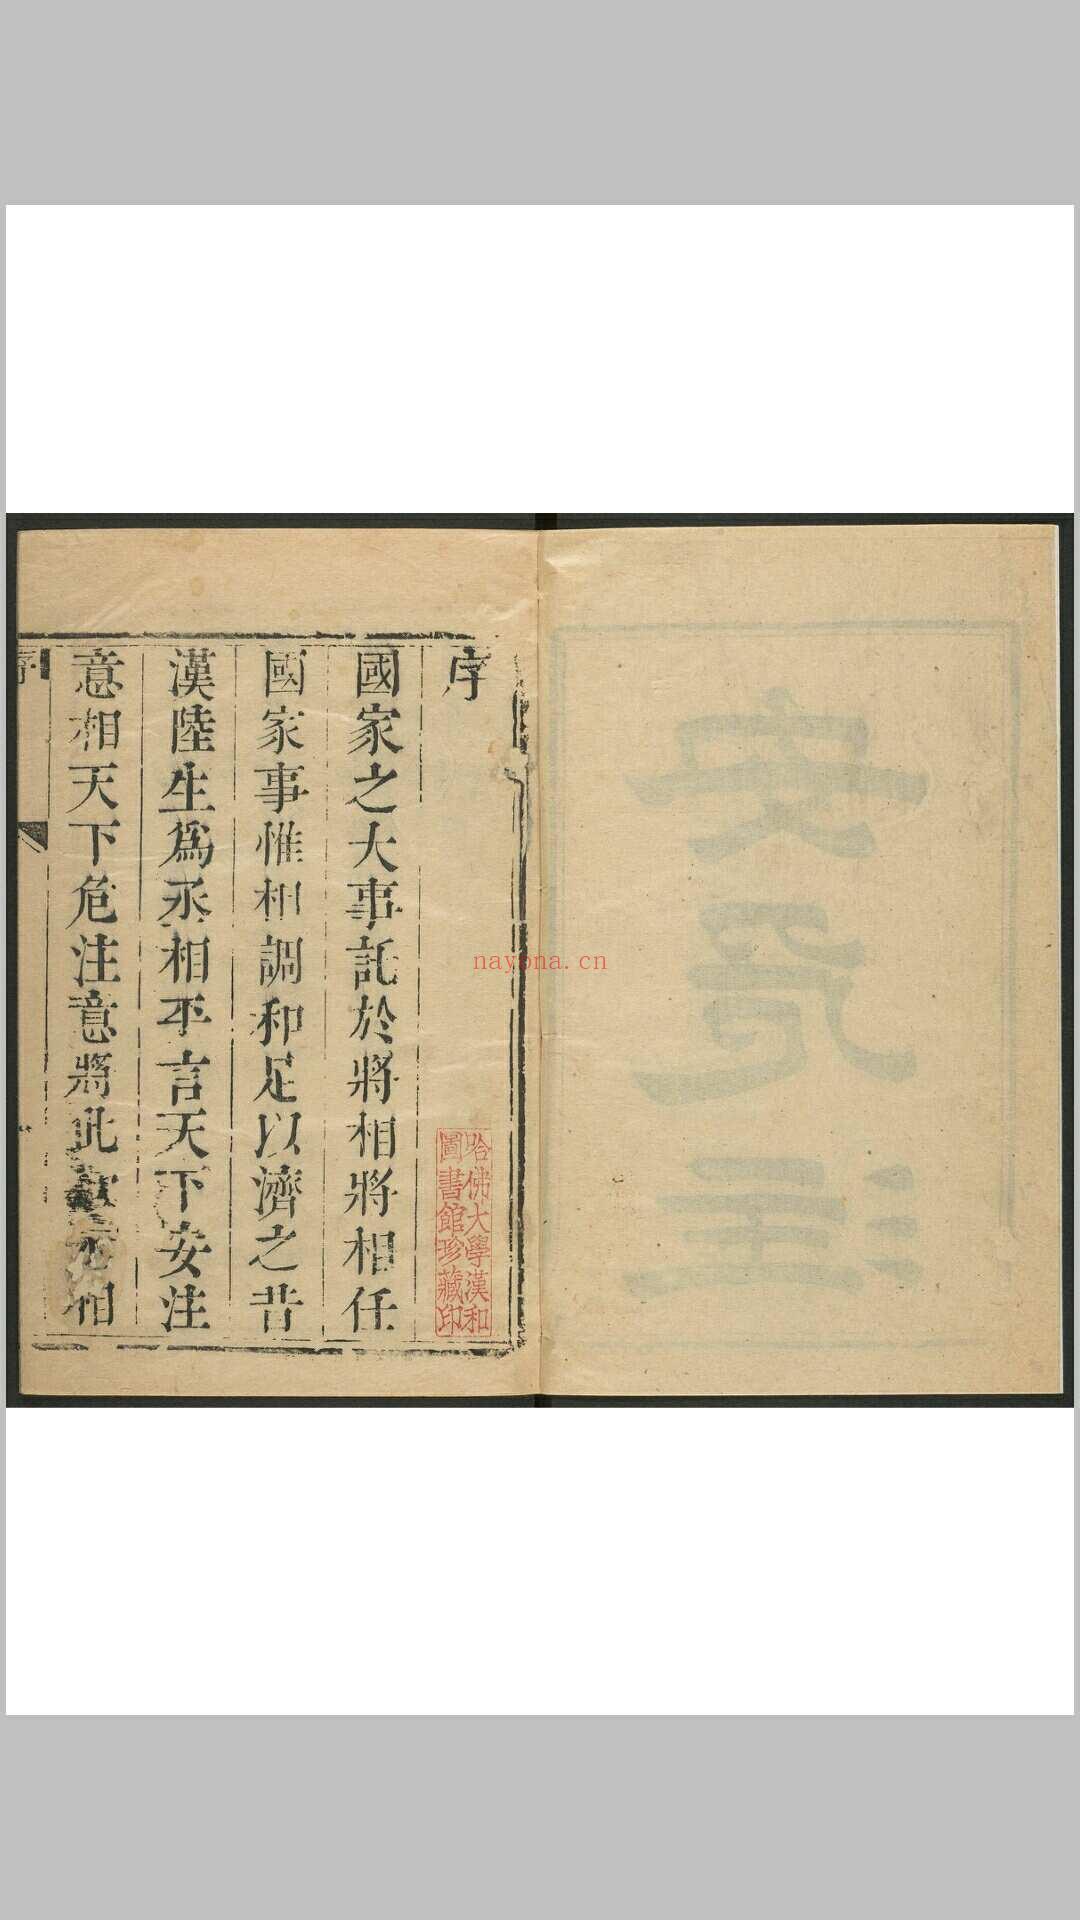 序
國家之大事託於將相將相任
國家事惟相調和足以濟之昔
漢陸生爲丞相平言天下安注
意相天下危注意將此相
序
哈佛大學漢和
圖書館珍藏印
nayona.cn
安危注